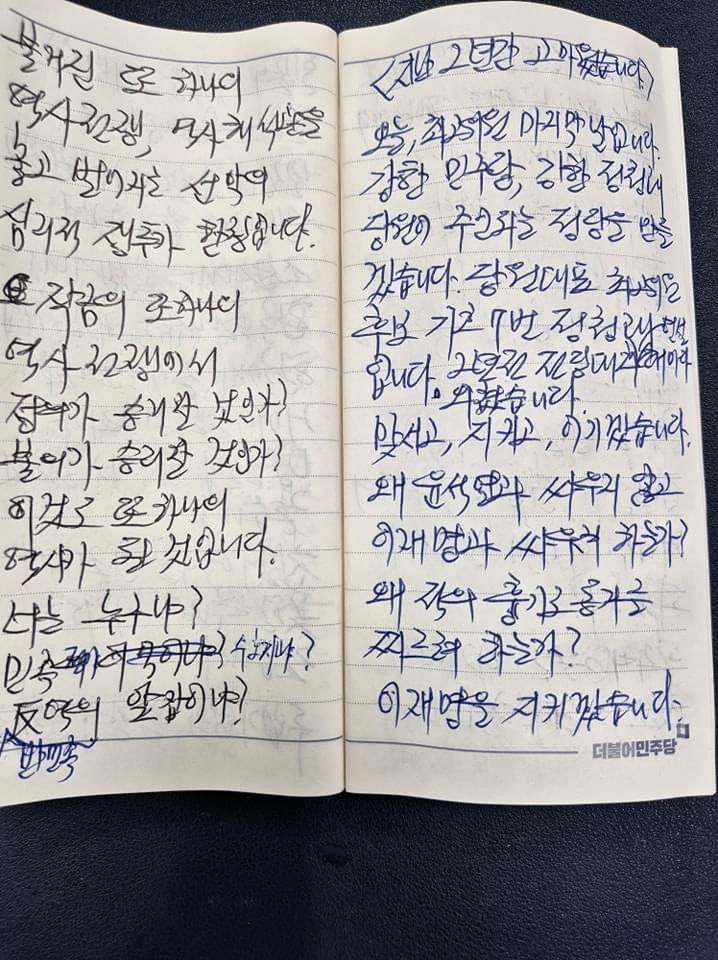 불거질 또 하나의
역사전쟁, 역사해석권을
놓고 벌어지는 선악의
심리적 쟁투가 한창입니다.
작금의 또 하나의
역사전쟁에서
정의가 승리할 것인가?
불의가 승리할 것인가?
이것도 또 하나의
역사가 될 것입니다.
너는 누구냐?
민족 수호자냐?
反역의 앞잡이냐?
반민족
<지난 2년간 고마웠습니다>
오늘, 최고위원 마지막 날입니다.
강한 민주당, 강한 정청래
당원이 주인되는 정당을 만들
겠습니다. 당원대표 최고위원
후보 기호 7번 정청래
입니다. 2년전 전당대회
외쳤습니다.
맞서고, 지키고, 이기겠습니다.
왜 윤석열과 싸우지 않고
이재명과 싸우려 하는가?
왜 적의 흉기로 동지를
찌르려 하는가?
이재명을 지키겠습니다.
더불어민주당